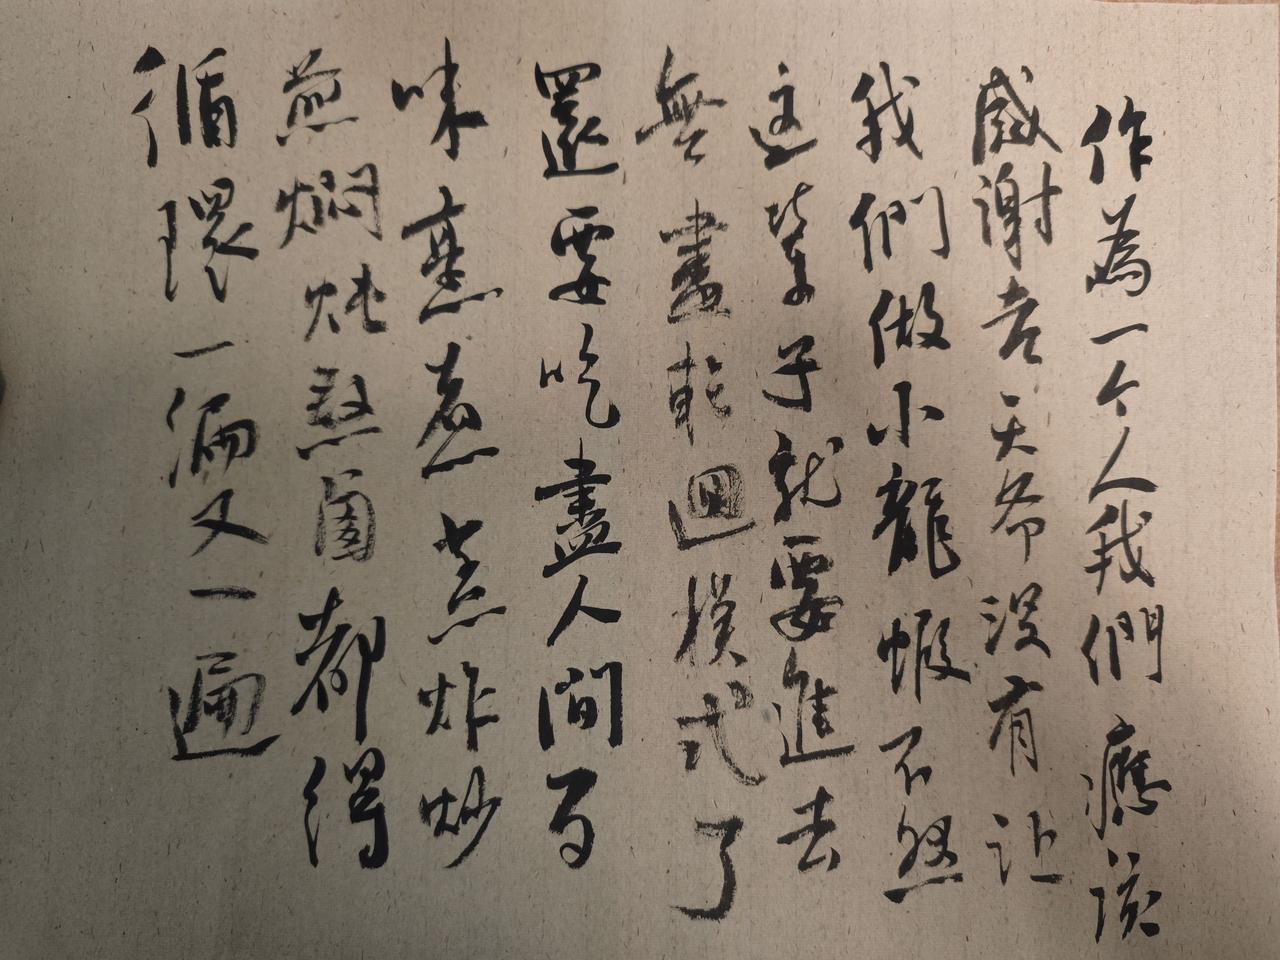 作為一个人我們應該
感謝老天爷没有让
我們做小龍蝦不然
这輩子就要進去
無盡輪迴模式了
還要吃盡人間百
味蒸煮烹炸炒
煎焖炖熬卤都得
循環一遍又一遍